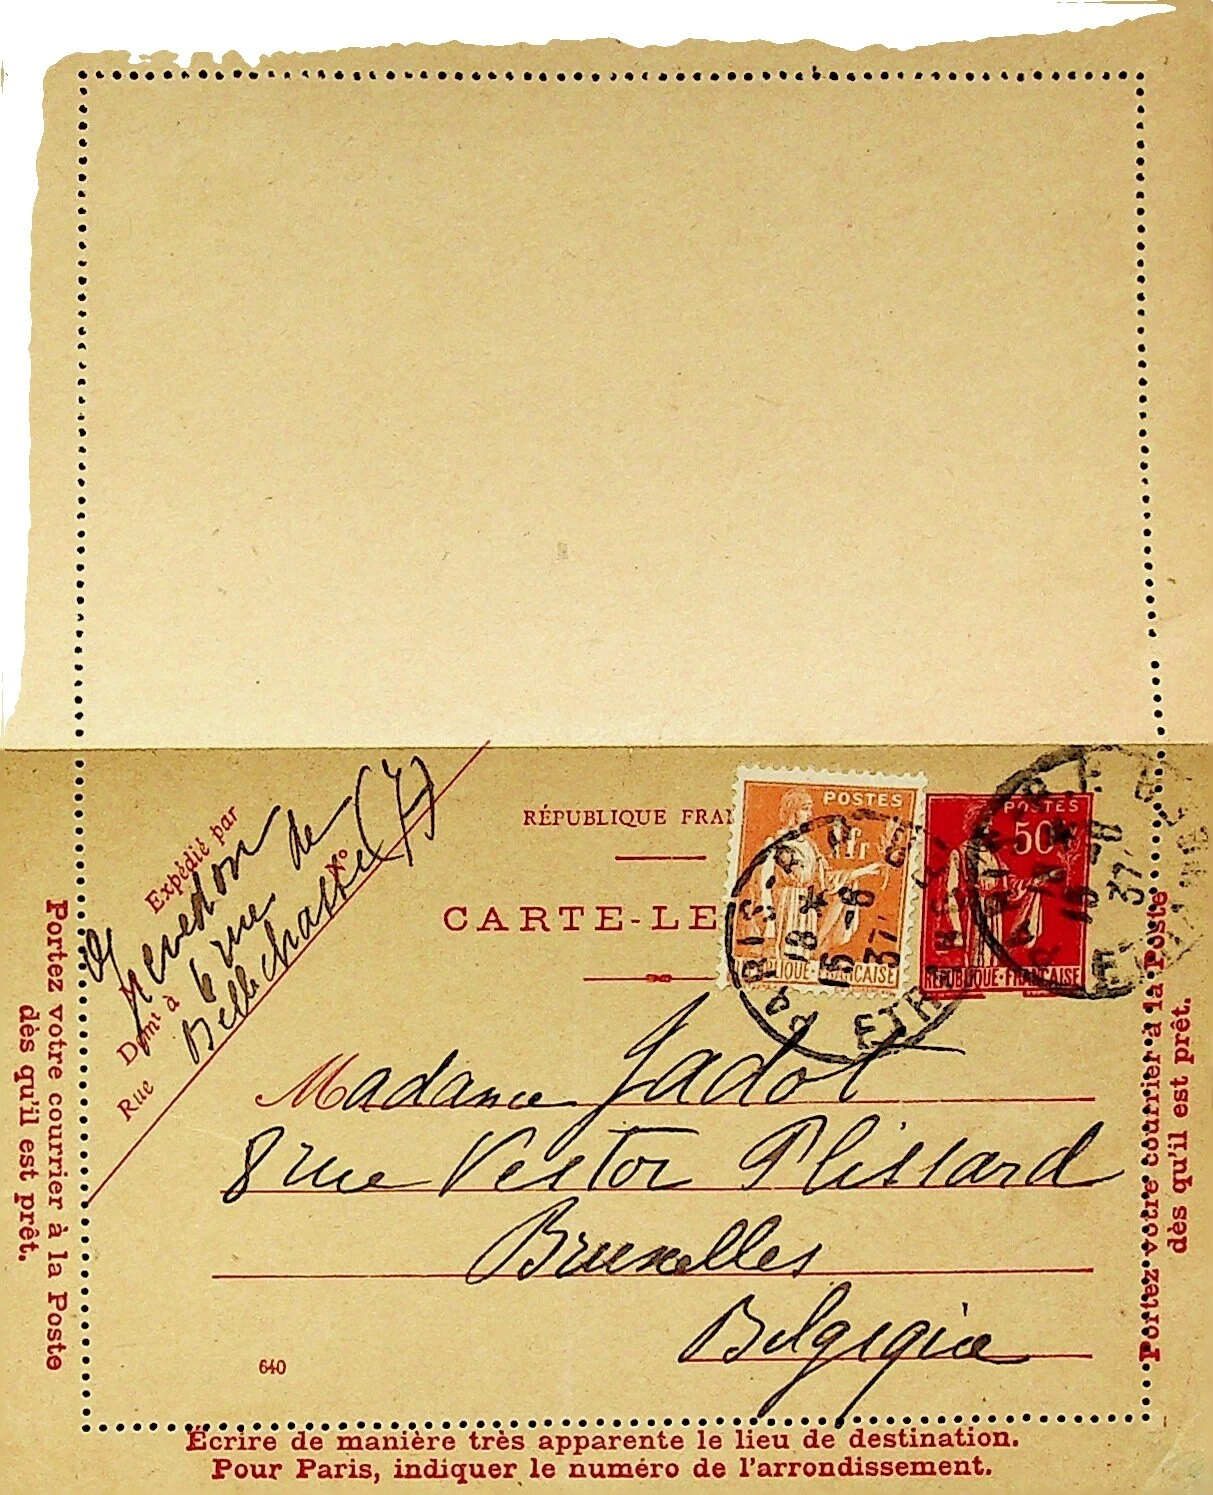 Expédié par
Demt à
Rue
No
6 rue de
Bellechasse (7)
RÉPUBLIQUE FRAN
CARTE-LE
POSTES
1Fr
RÉPUBLIQUE-FRANÇAISE
POSTES
50c
RÉPUBLIQUE-FRANÇAISE
PARIS-R.P.
18
16-8
37
ETR
PARIS-R.P.
18
16-8
37
ETR
Madame Jadot
8 rue Vestor Plissard
Bruxelles
Belgique
640
Portez votre courrier à la Poste
dès qu'il est prêt.
Portez votre courrier à la Poste
dès qu'il est prêt.
Écrire de manière très apparente le lieu de destination.
Pour Paris, indiquer le numéro de l'arrondissement.